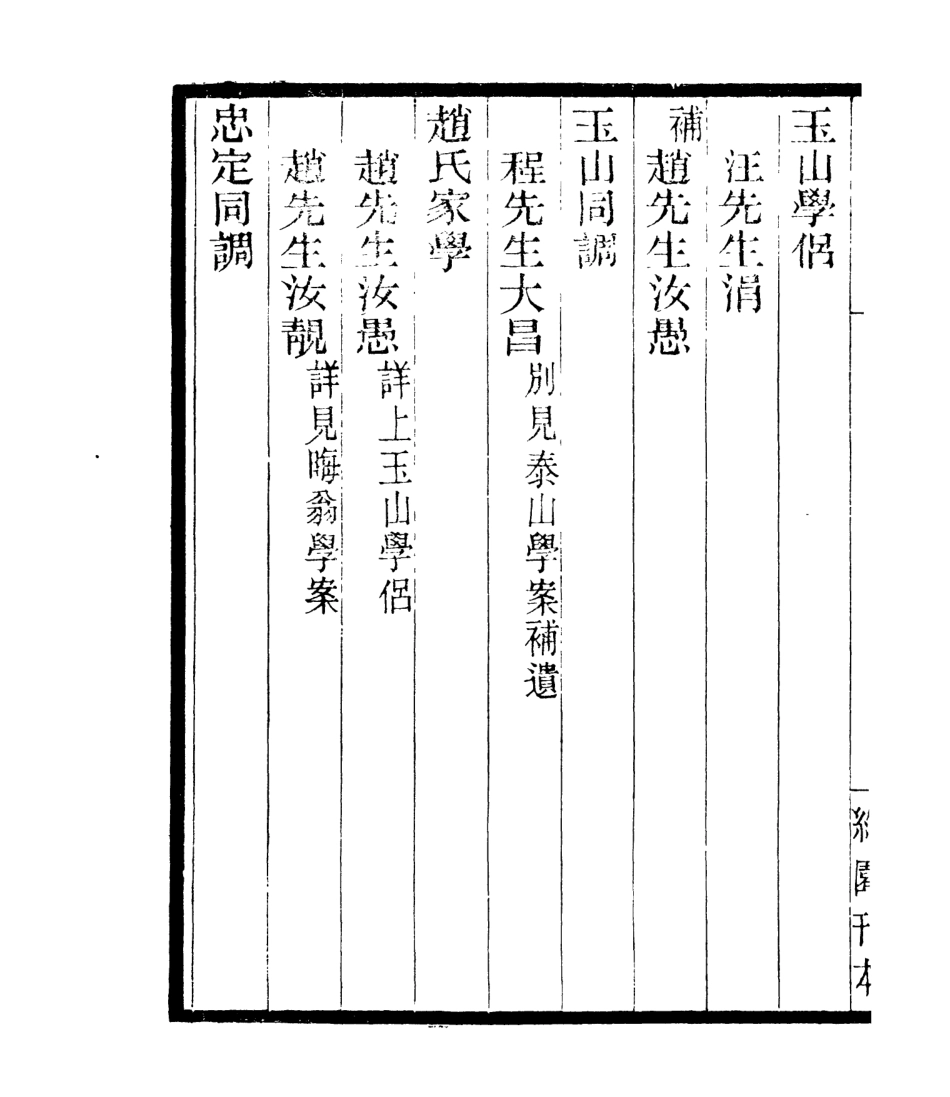 玉山學侶
汪先生涓
補趙先生汝愚
玉山同調
程先生大昌別見泰山學案補遺
趙氏家學
趙先生汝愚詳上玉山學侶
趙先生汝靚詳見晦翁學案
忠定同調
約園刊本